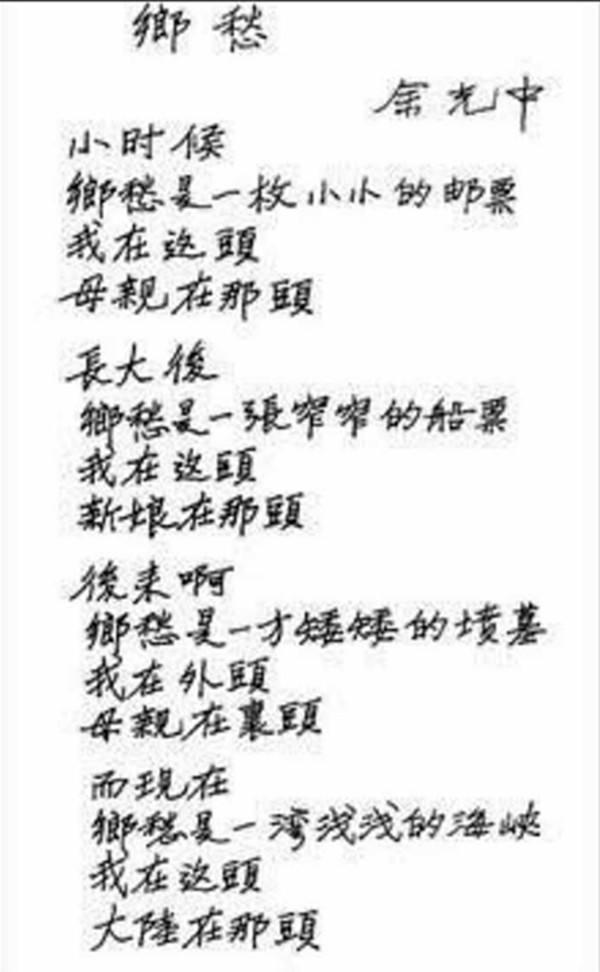 鄉愁
余光中
小时候
鄉愁是一枚小小的邮票
我在这頭
母親在那頭
長大後
鄉愁是一張窄窄的船票
我在这頭
新娘在那頭
後来啊
鄉愁是一方矮矮的墳墓
我在外頭
母親在裏頭
而現在
鄉愁是一湾浅浅的海峽
我在这頭
大陸在那頭